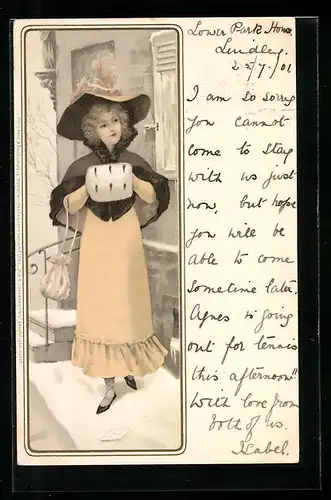 Lower Park House
Lindley.
25/7/01
I am so sorry
you cannot
come to stay
with us just
now, but hope
you will be
able to come
sometime later.
Agnes is going
out for tennis
this afternoon"
With love from
both of us.
Isabel.